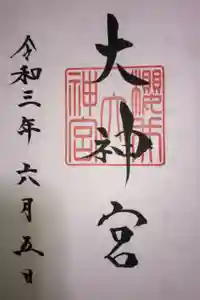 大神宮
令和三年 六月五日
神宮